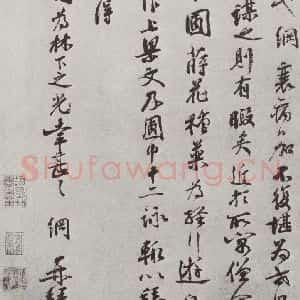 綱衰病加不復堪為世
謀之則有暇矣近於所寓僧
圃蒔花種藥為經行遊
作上梁文乃圃中十二詠輒以
得
為林下之光幸甚々綱再拜
Shufawang.CN